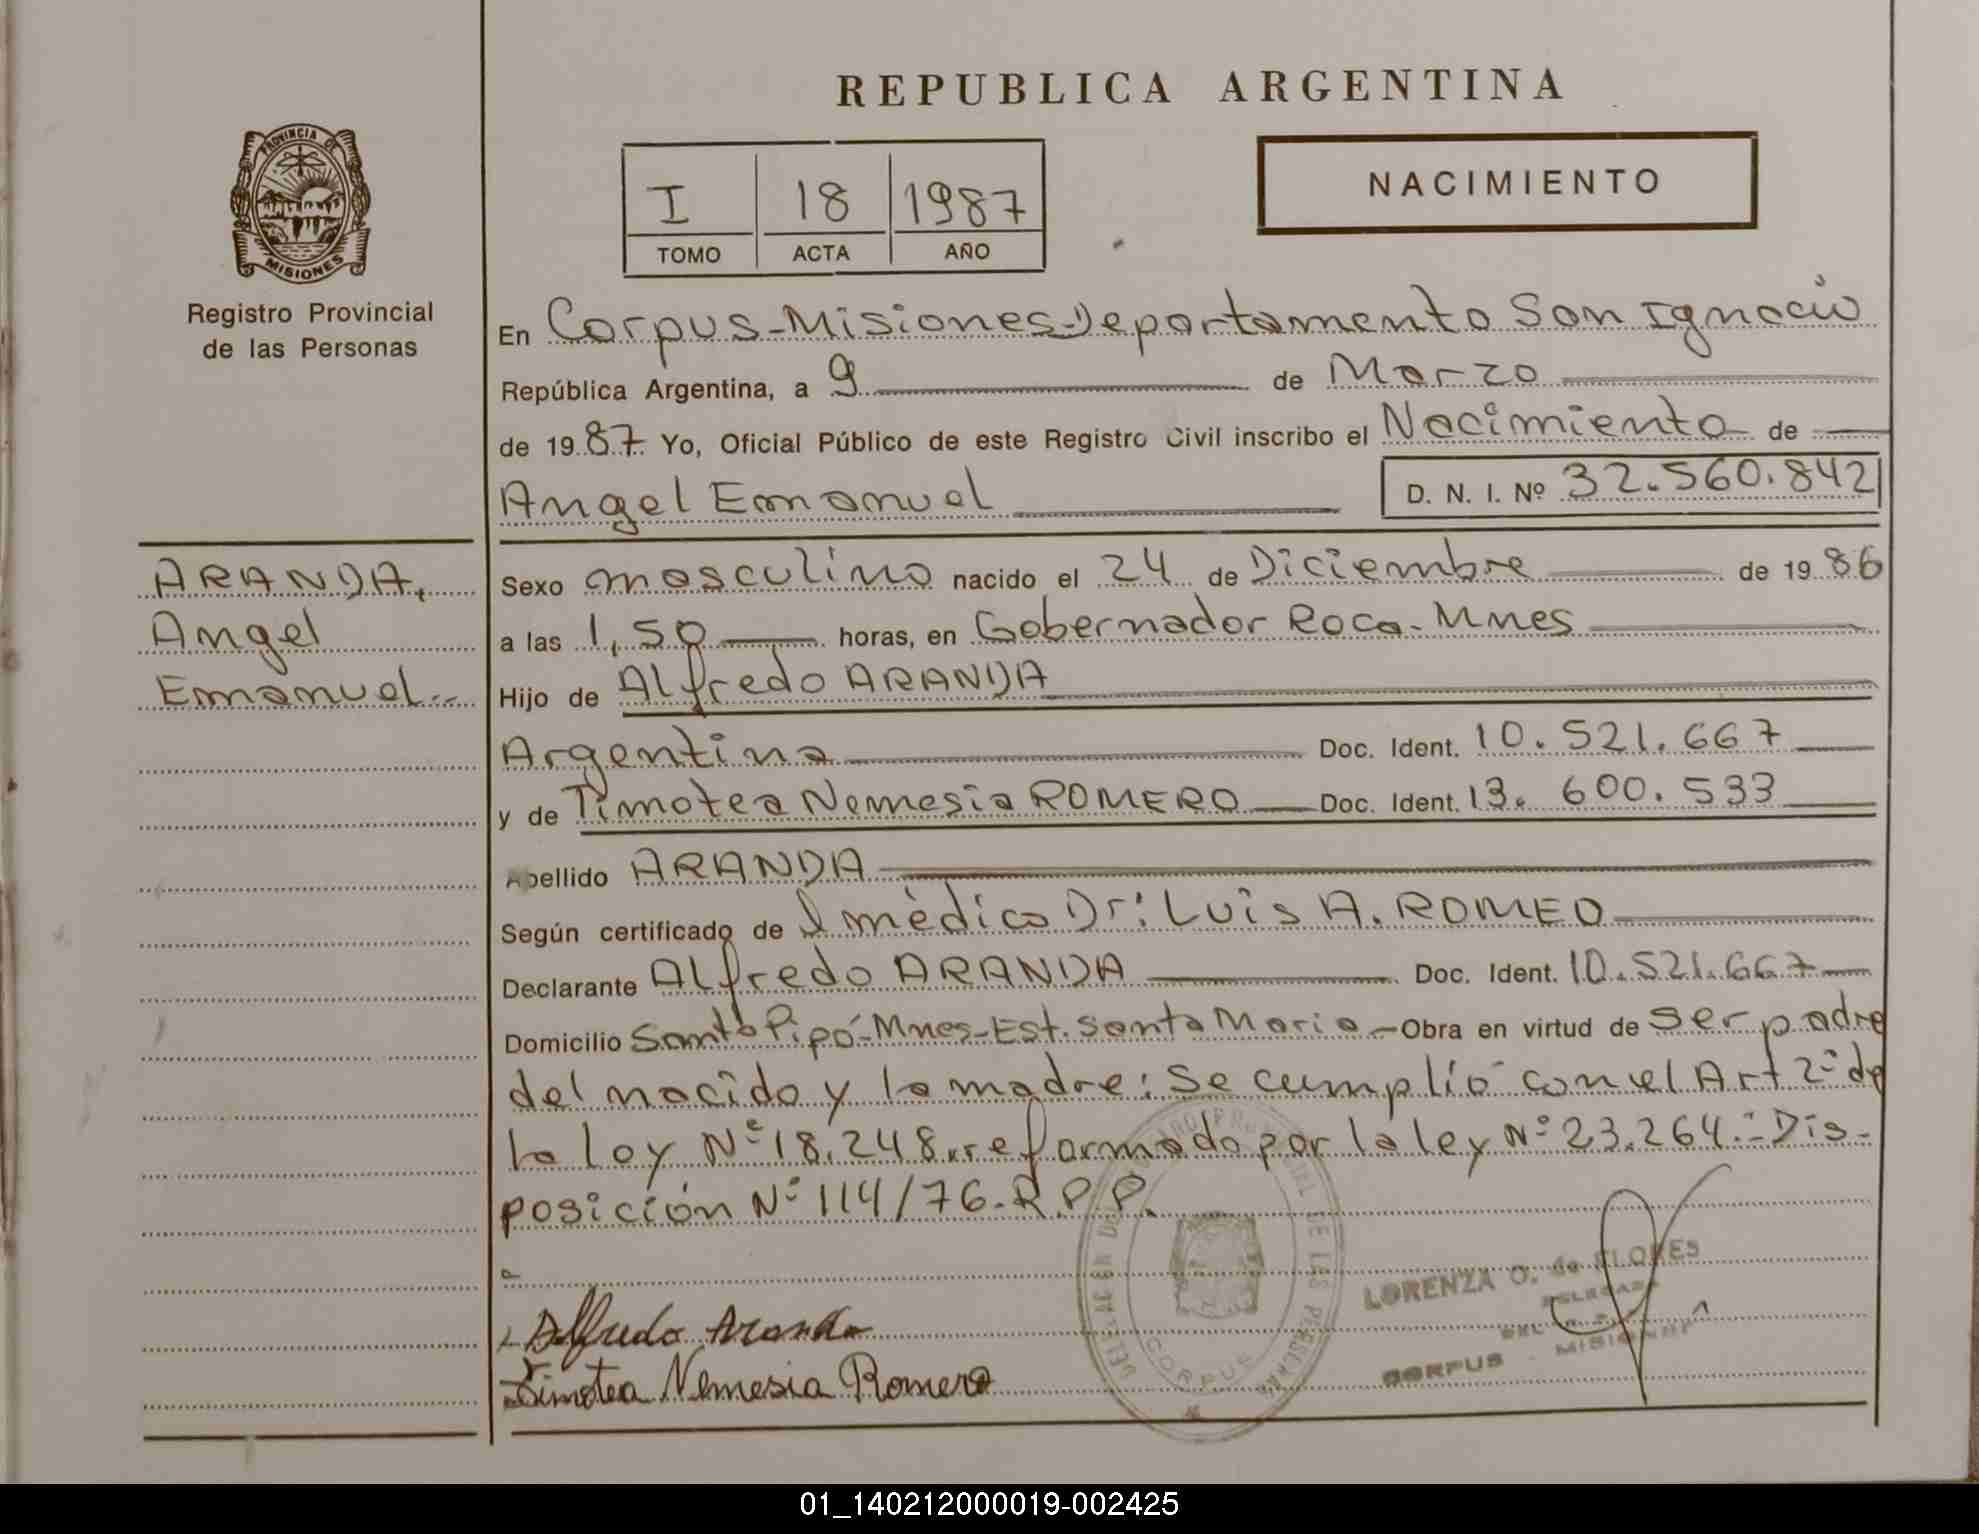 REPUBLICA ARGENTINA
PROVINCIA DE
MISIONES
Registro Provincial
de las Personas
I 18 1987
TOMO ACTA AÑO
NACIMIENTO
En Corpus-Misiones-Departamento San Ignacio
República Argentina, a 9 de Marzo
de 1987 Yo, Oficial Público de este Registro Civil inscribo el Nacimiento de
Angel Emanuel D. N. I. Nº 32.560.842
ARANDA,
Angel
Emanuel
Sexo masculino nacido el 24 de Diciembre de 1986
a las 1,50 horas, en Gobernador Roca-Mnes
Hijo de Alfredo ARANDA
Argentina Doc. Ident. 10.521.667
y de Timotea Nemesia ROMERO Doc. Ident. 13.600.533
Apellido ARANDA
Según certificado de l médico Dr: Luis A. ROMEO
Declarante Alfredo ARANDA Doc. Ident. 10.521.667
Domicilio Santo Pipó-Mnes-Est. Santa Maria- Obra en virtud de ser padre
del nacido y la madre: Se cumplió con el Art 2º de
la ley Nº 18.248 reformado por la ley Nº 23.264.- Dis-
posición Nº 114/76-R.P.P.
Alfredo Aranda
Timotea Nemesia Romero
DELEGACION DEL REGISTRO PROVINCIAL DE LAS PERSONAS
CORPUS
LORENZA O. de FLORES
DELEGADA
CORPUS - MISIONES
01_140212000019-002425